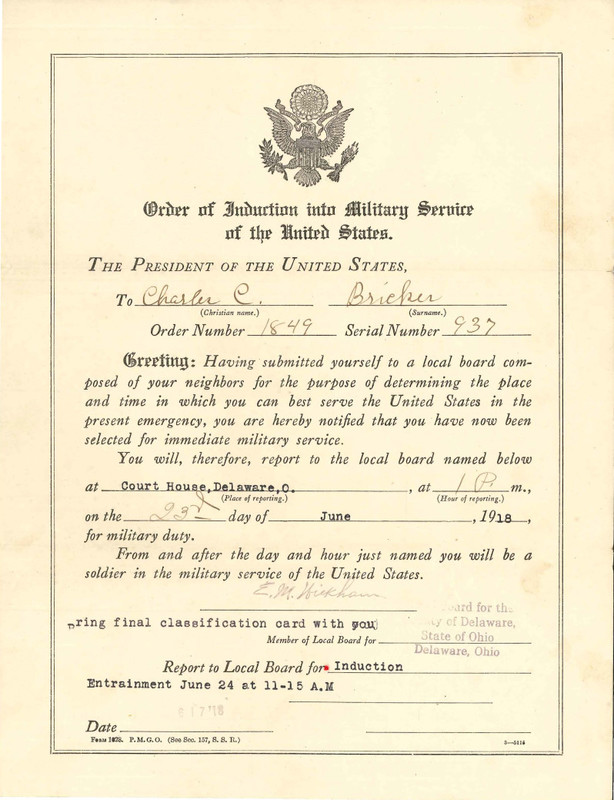 Order of Induction into Military Service
of the United States.
THE PRESIDENT OF THE UNITED STATES,
To Charles C. Bricker
(Christian name.) (Surname.)
Order Number 1849 Serial Number 937
Greeting: Having submitted yourself to a local board com-
posed of your neighbors for the purpose of determining the place
and time in which you can best serve the United States in the
present emergency, you are hereby notified that you have now been
selected for immediate military service.
You will, therefore, report to the local board named below
at Court House, Delaware, O. , at 1 P. m.,
(Place of reporting.) (Hour of reporting.)
on the 23rd day of June , 1918,
for military duty.
From and after the day and hour just named you will be a
soldier in the military service of the United States.
E. M. Wickham
ard for the
ring final classification card with you
y of Delaware,
Member of Local Board for State of Ohio
Delaware, Ohio
Report to Local Board for Induction
Entrainment June 24 at 11-15 A.M
Date
Form 1028. P. M. G. O. (See Sec. 157, S. S. R.) 3—5115